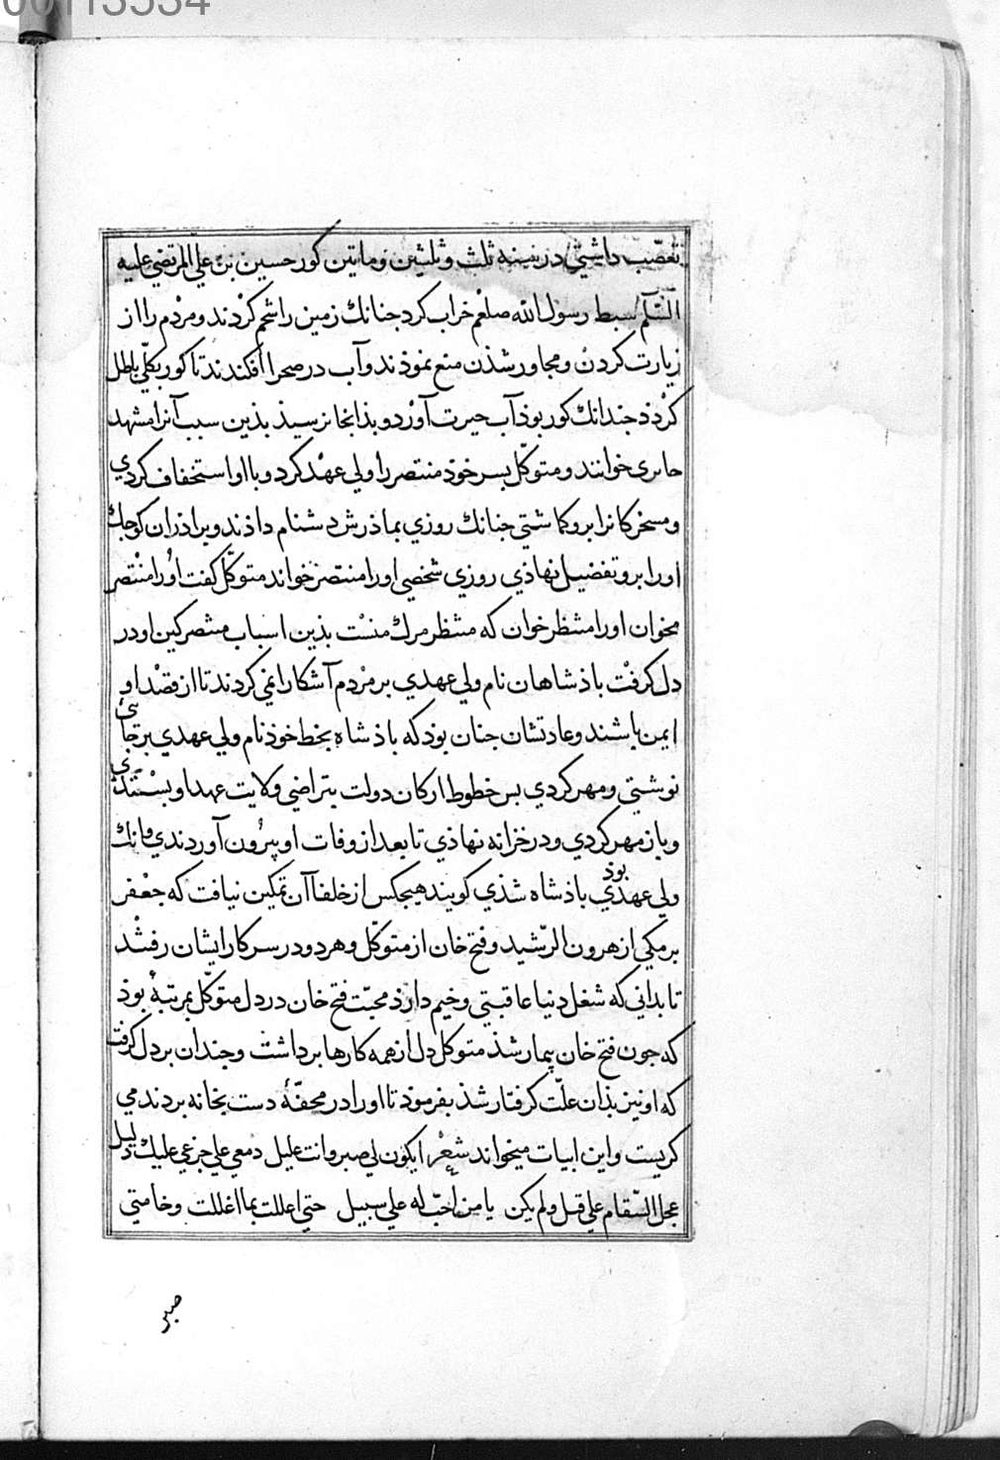 00113534
تعصّب داشتی در سنه ثلث و ثلثین و ماتین کور حسین بن علی المرتضی علیه
السّلم سبط رسول الله صلعم خراب کرد جنانك زمین را شخم کردند و مردم را از
زیارت کردن و مجاور شذن منع نموذند و آب در صحرا افکندند تا کور بکلّی باطل
کرذذ جندانك کور بوذ آب حیرت آورد و بذانجا نرسیذ بذین سبب آنرا مشهد
حایری خوانند و متوکّل بسر خوذ منتصر را ولی عهد کرد و با او استخفاف کردی
و مسخرکانرا برو کماشتی جنانك روزی بماذرش دشنام داذند و براذران کوجك
اورا برو تفضیل نهاذی روزی شخصی اورا منتصر خواند متوکّل کفت اورا منتصر
مخوان اورا منتظر خوان که منتظر مرك منست بذین اسباب منتصر کین او در
دل کرفت باذشاهان نام ولی عهدی بر مردم آشکارا نمی کردند تا از قصد او
ایمن باشند و عادتشان جنان بوذ که باذشاه بخط خوذ نام ولی عهدی بر جائی
نوشتی و مهر کردی بس خطوط ارکان دولت بتراضی ولایت عهد او بستدی
و باز مهر کردی و در خزانه نهاذی تا بعد از وفات او بیرون آوردندی و آنك
ولی عهد بوذی باذشاه شذی کویند هیجکس از خلفا آن تمکین نیافت که جعفر
برمکی از هرون الرّشید و فتح خان از متوکّل و هر دو در سر کار ایشان رفتند
تا بدانی که شغل دنیا عاقبتی وخیم دارذ محبّت فتح خان در دل متوکّل بمرتبهٔ بوذ
که جون فتح خان بیمار شذ متوکل دل از همه کارها برداشت و جندان بر دل کرفت
که او نیز بذان علّت کرفتار شذ بفرموذ تا اورا در محفّهٔ دست بخانه بردند می
کریست و این ابیات میخواند شعر ایکون لی صبر و انت علیل دمعی علی جزعی علیك دلیل
عجل السّقام علی قبل و لم یکن یا من احبّ له علی سبیل حتی اعللت بما اعللت و خامتی
صبر